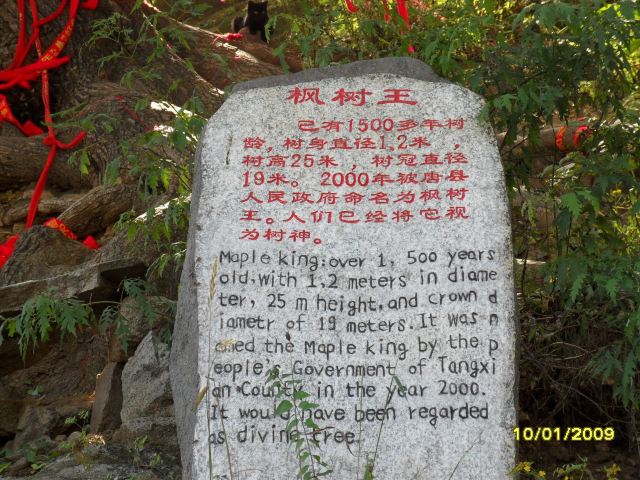 枫树王
己有1500多年树
龄,树身直径1.2米,
树高25米,树冠直径
19米。2000年被唐县
人民政府命名为枫树
王。人们已经将它视
为树神。
Maple king:over 1, 500 years
old,with 1.2 meters in diame
ter, 25 m height,and crown d
iametr of 19 meters.It was n
amed the Maple king by the p
eople,s Government of Tangxi
an County in the year 2000.
It would have been regarded
as divine tree.
10/01/2009